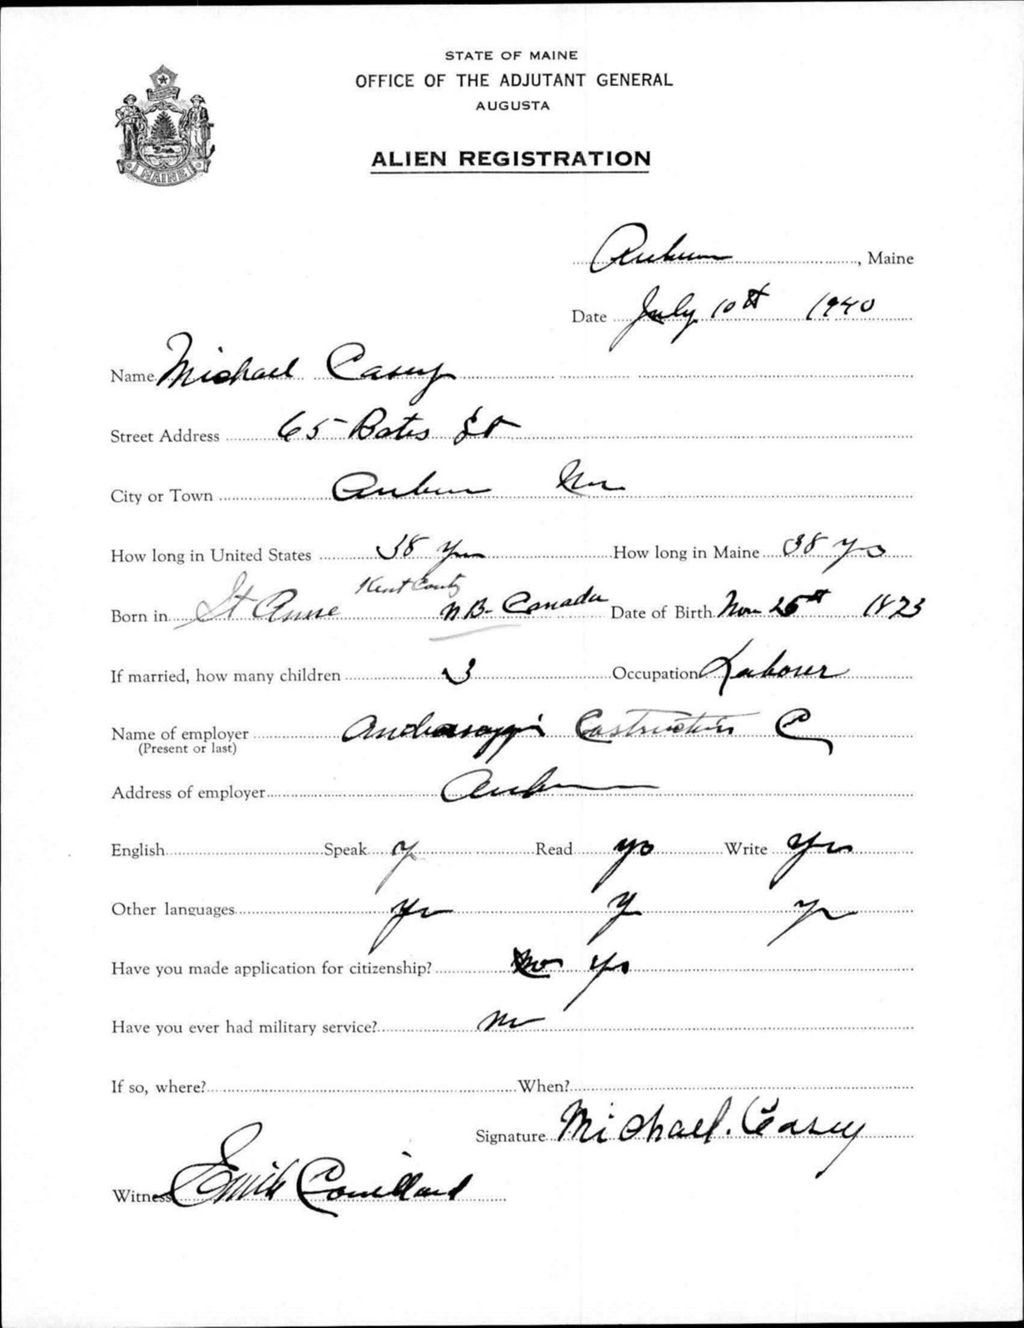 STATE OF MAINE
OFFICE OF THE ADJUTANT GENERAL
AUGUSTA
ALIEN REGISTRATION
MAINE
Auburn, Maine
Date July 10th 1940
Name Michael Casey
Street Address 65 Bates St
City or Town Auburn Me
How long in United States 38 Yrs How long in Maine 38 yrs
Kent County
Born in St Anne N B Canada Date of Birth Nov 25th 1873
If married, how many children 3 Occupation Laborer
Name of employer Androscoggin Construction C
(Present or last)
Address of employer Auburn
English Speak y Read yes Write Yes
Other languages Yes y yes
Have you made application for citizenship? No Yes
Have you ever had military service? No
If so, where? When?
Signature Michael. Casey
Witness Emile Couillard